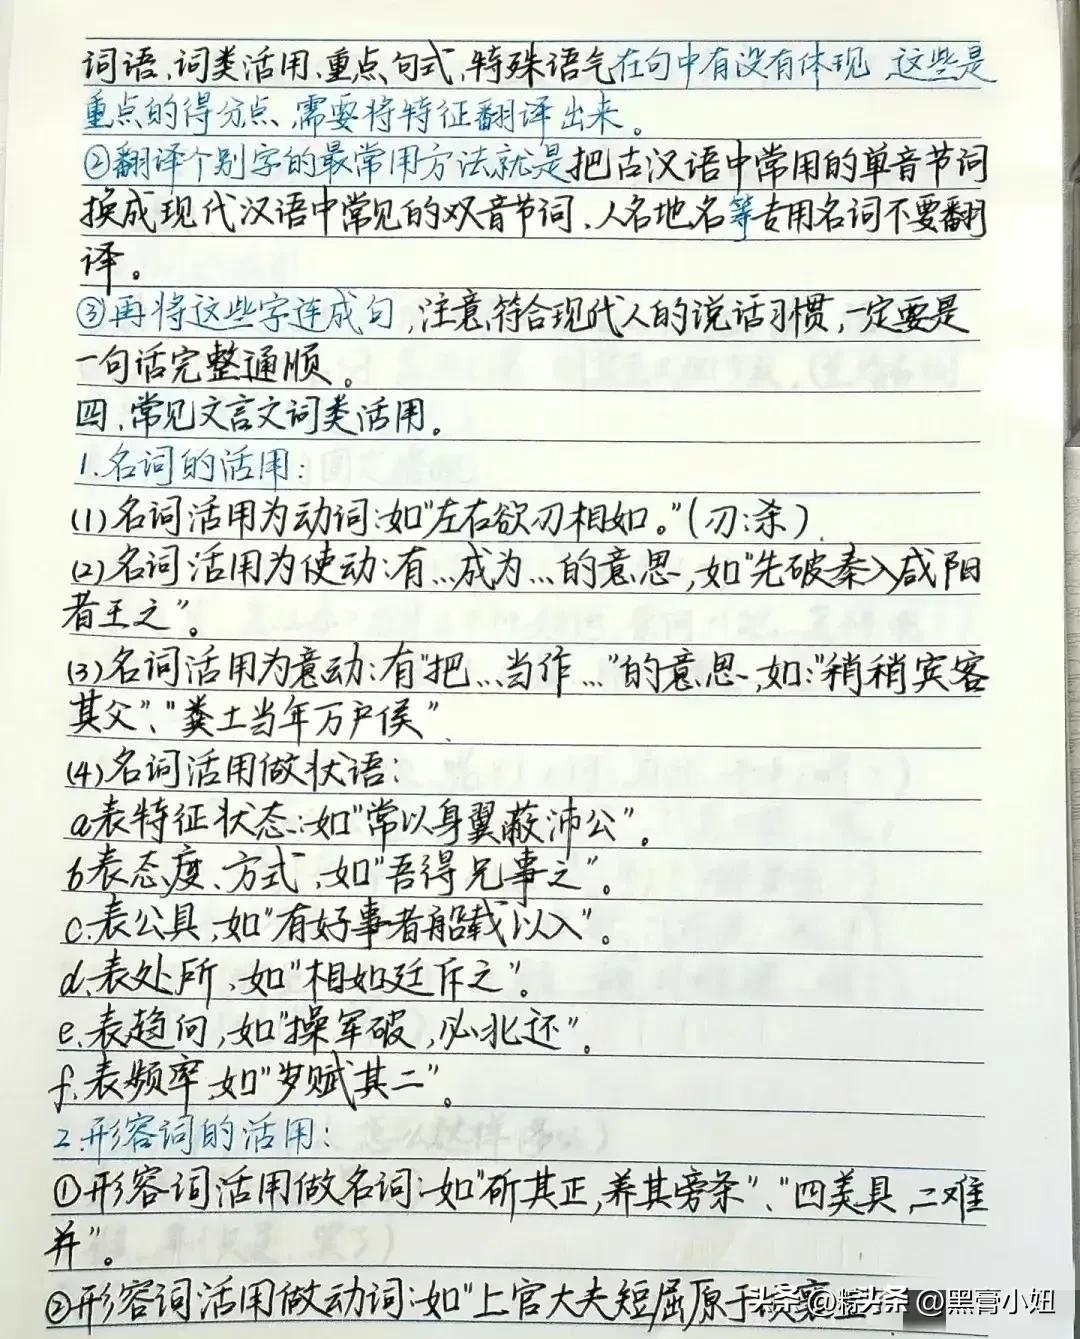 词语、词类活用、重点句式、特殊语气在句中有没有体现、这些是
重点的得分点、需要将特征翻译出来。
②翻译个别字的最常用方法就是把古汉语中常用的单音节词
换成现代汉语中常见的双音节词、人名地名等专用名词不要翻
译。
③再将这些字连成句,注意符合现代人的说话习惯,一定要是
一句话完整通顺。
四、常见文言文词类活用。
1.名词的活用:
(1)名词活用为动词:如"左右欲刃相如。"(刃:杀)
(2)名词活用为使动:有…成为…的意思,如"先破秦入咸阳
者王之"。
(3)名词活用为意动:有"把…当作…"的意思,如:"稍稍宾客
其父"、"粪土当年万户侯"
(4)名词活用做状语:
a表特征状态:如"常以身翼蔽沛公"。
b表态度、方式、如"吾得兄事之"。
c.表公具,如"有好事者船载以入"。
d.表处所、如"相如廷斥之"。
e.表趋向,如"操军破,必北还"。
f.表频率,如"岁赋其二"。
2.形容词的活用:
①形容词活用做名词:如"斫其正,养其旁条"、"四美具,二难
并"。
②形容词活用做动词:如"上官大夫短屈原于
头条 @黑膏小妞